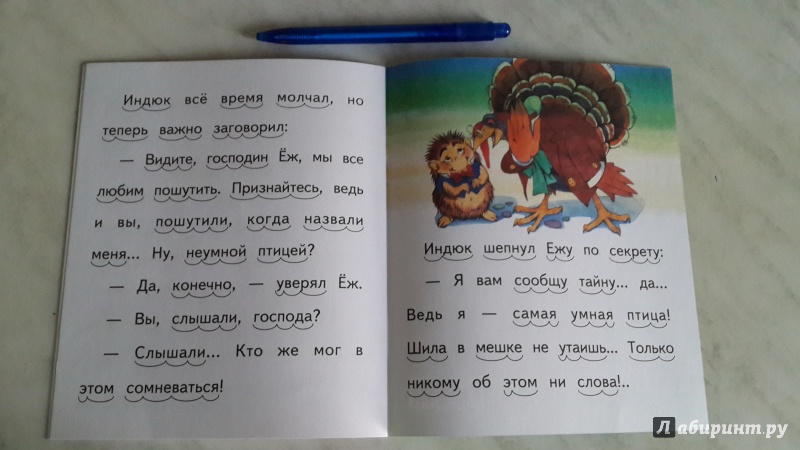 Индюк всё время молчал, но
теперь важно заговорил:
— Видите, господин Ёж, мы все
любим пошутить. Признайтесь, ведь
и вы, пошутили, когда назвали
меня... Ну, неумной птицей?
— Да, конечно, — уверял Ёж.
— Вы, слышали, господа?
— Слышали... Кто же мог в
этом сомневаться!
Индюк шепнул Ежу по секрету:
— Я вам сообщу тайну... да...
Ведь я — самая умная птица!
Шила в мешке не утаишь... Только
никому об этом ни слова!..
Лабиринт.ру